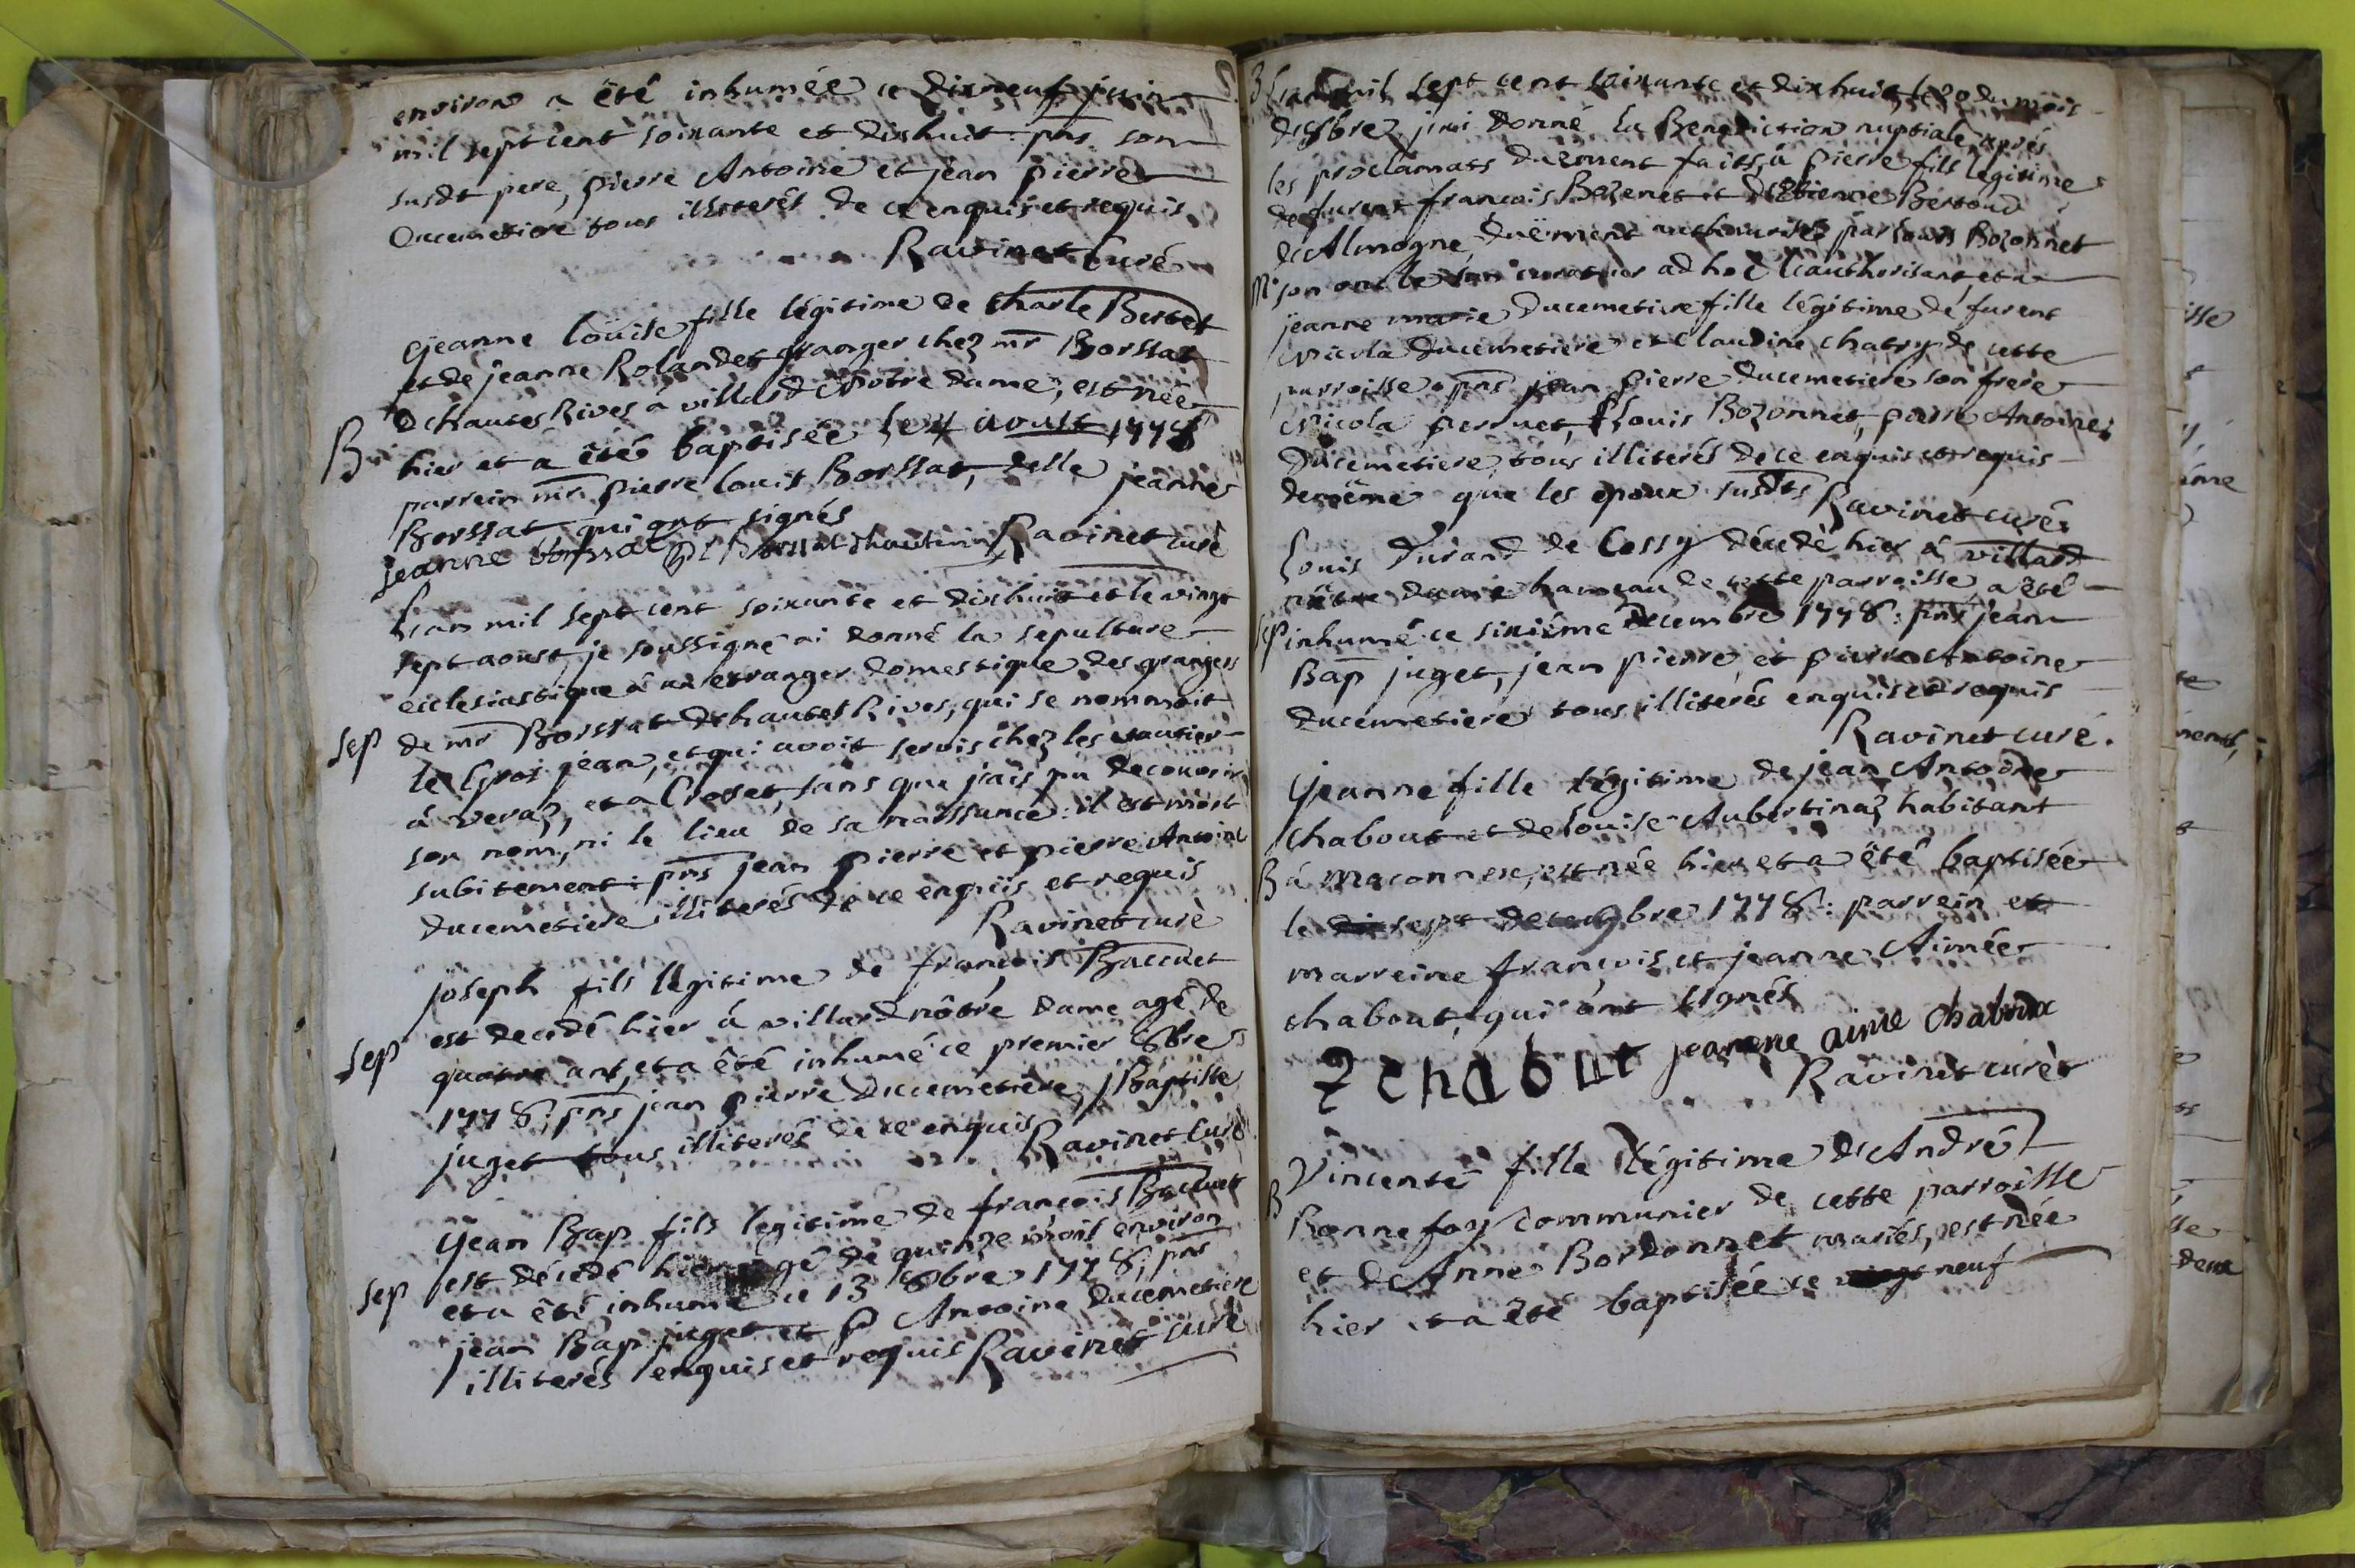 environ a été inhumée ce dixneuf juin
mil sept cent soixante et dixhuit: pns son
susdt pere, pierre Antoine et jean pierre
Ducemetiere tous illiterés de ce enquis et requis
Ravinet Curé
jeanne Loüise fille légitime de Charle Bertet
et de jeanne Rolandet granger chez mr Borssat
Dehautes Rives à villard Notre Dame, est née
B
hier et a été baptisée le 4 aoust 1778
parrein mr pierre Louis Borssat, delle jeanne
Borssat qui ont signés
jeanne Borssat Ravinet curé
L'an mil sept cent soixante et dixhuit et le vingt
sept aoust, je soussigné ai donné la sepulture
ecclesiastique à un etranger domestique des grangers
Sep
de mr Borssat dehautes Rives, qui se nommoit
le Gros jean, et qui avoit servis chez les vautier
à veraz, et a Crozet, sans que j'ais pu decouvrir
son nom, ni le lieu de sa naissance: il est mort
subitement: pns jean pierre et pierre Antoine
ducemetiere illiterés de ce enquis et requis
Ravinet curé
joseph fils légitime de françois
est decedé hier à villard nôtre Dame agé de
Sep
quatre ans, et a été inhumé ce premier 8bre
1778; pns jean pierre Ducemetiere, j Baptiste
juget tous illiterés de ce enquis
Ravinet Curé
jean Bap fils legitime de françois
est décedé hier agé de quinze mois environ
Sep
et a été inhumé ce 13 8bre 1778; pns
jean Bap juget et P Antoine Ducemetiere
illiterés enquis et requis Ravinet curé
L'an mil sept cent soixante et dixhuit, le 20 du mois
j'ai donné la Benediction nuptiale, après
les proclamats duement faits, à pierre fils légitime
de furent françois Bozonet et d'Etienne Bertoud
d'Almogne, duëment authorisé par Louis Bozonnet
M
son oncle son curateur ad hoc l'authorisant, et à
jeanne marie Ducemetiere fille légitime de furent
Nicola Ducemetiere et Claudine chatry de cette
parroisse. pns jean pierre Ducemetiere son frere
Nicola perruet, Louis Bozonnet, pierre Antoine
Ducemetiere, tous illiterés de ce enquis et requis
demëme que les epoux susdts Ravinet curé
Louis Durand de Cessy décedè hier à villard
nôtre dame hameau de cette parroisse, a été
Sep
inhumé ce sixiéme Decembre 1778: pns jean
Bap juget, jean pierre et pierre Antoine
ducemetiere tous illiterés enquis et requis
Ravinet curé.
jeanne fille légitime de jean Antoine
chabout et de Louise Aubertinaz habitant
B
à maconnex, est née hier et a été baptisée
le sept decembre 1778: parrein et
marreine françois et jeanne Aimée
chabout, qui ont signés
chabout jeanne aime chaboux
Ravinet curé
Vincente fille légitime d'André
B
Bonnefoy communier de cette parroisse
et d'Anne Bordonnet mariés, est née
hier et a été baptisée ce neuf